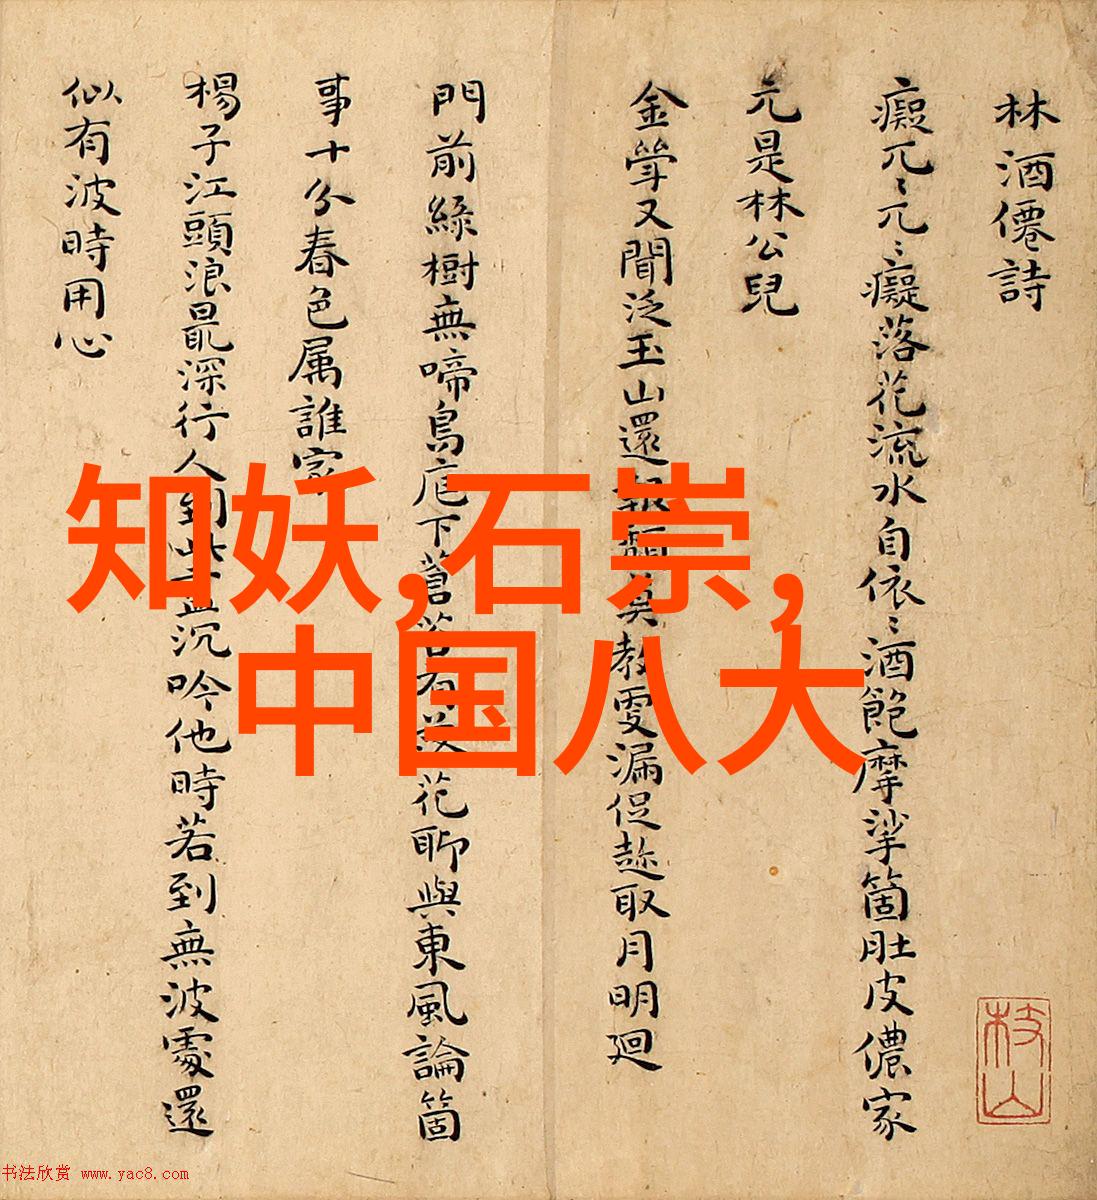 林酒僊詩
癡兀〻兀〻癡落花流水自依〻酒飽摩挲箇肚皮儂家
元是林公兒
金斝又聞泛玉山還報頹莫教更漏促趂取月明廻
門前綠樹無啼鳥庭下蒼苔有落花聊與東風論箇
事十分春色属誰家
楊子江頭浪最深行人到此盡沉吟他時若到無波處還
似有波時用心
枝山
知妖,石崇,
中国八大
书法欣赏 www.yac8.com